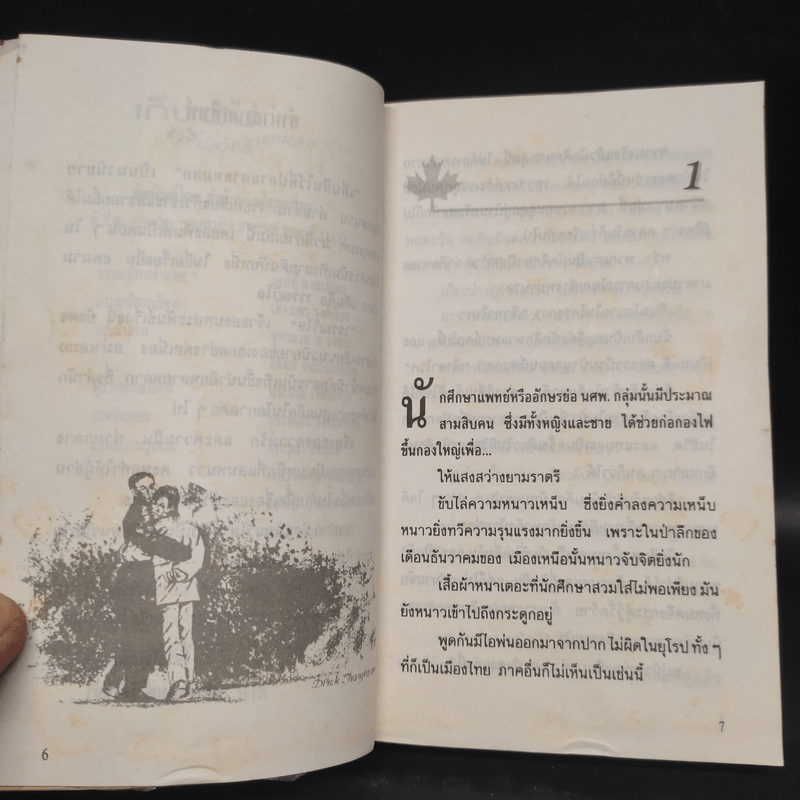 6
1
นักศึกษาแพทย์หรืออักษรย่อ นศพ. กลุ่มนั้นมีประมาณ
สามสิบคน ซึ่งมีทั้งหญิงและชาย ได้ช่วยก่อกองไฟ
ขึ้นกองใหญ่เพื่อ...
ให้แสงสว่างยามราตรี
ขับไล่ความหนาวเหน็บ ซึ่งยิ่งค่ำลงความเหน็บ
หนาวยิ่งทวีความรุนแรงมากยิ่งขึ้น เพราะในป่าลึกของ
เดือนธันวาคมของ เมืองเหนือนั้นหนาวจับจิตยิ่งนัก
เสื้อผ้าหนาเตอะที่นักศึกษาสวมใส่ไม่พอเพียง มัน
ยังหนาวเข้าไปถึงกระดูกอยู่
พูดกันมีไอพ่นออกมาจากปาก ไม่ผิดในยุโรป ทั้ง ๆ
ที่ก็เป็นเมืองไทย ภาคอื่นก็ไม่เห็นเป็นเช่นนี้
7